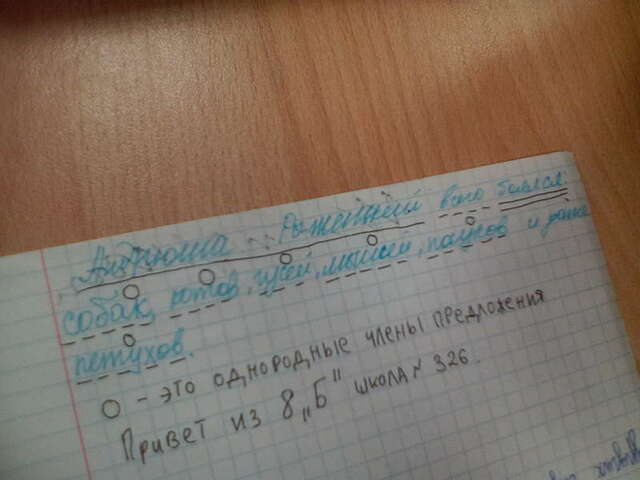 Андрюша Рыженький всего боялся:
собак, котов, гусей, мышей, пауков и даже
петухов.
О - это однородные члены предложения
Привет из 8 „Б" школа № 326.